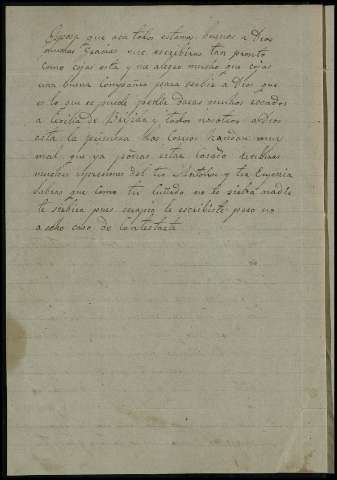 Esposa que aca todos estamos buenos a Dios
muchas gracias nos escribiras tan pronto
como cojas esta y me alegro mucho que cojas
una buena compañia para servir a Dios que
es lo que se puede pedir daras muchos recados
a de y todos nosotros adios
esta la primera los correos handan muy
mal que ya podias estar casado recibiras
muchas espresiones del tio Antonio y tia Eugenia
sabras que como tu cuñado no le sirba nadie
te serbira pues le escribiste pero no
a echo caso de contestarte